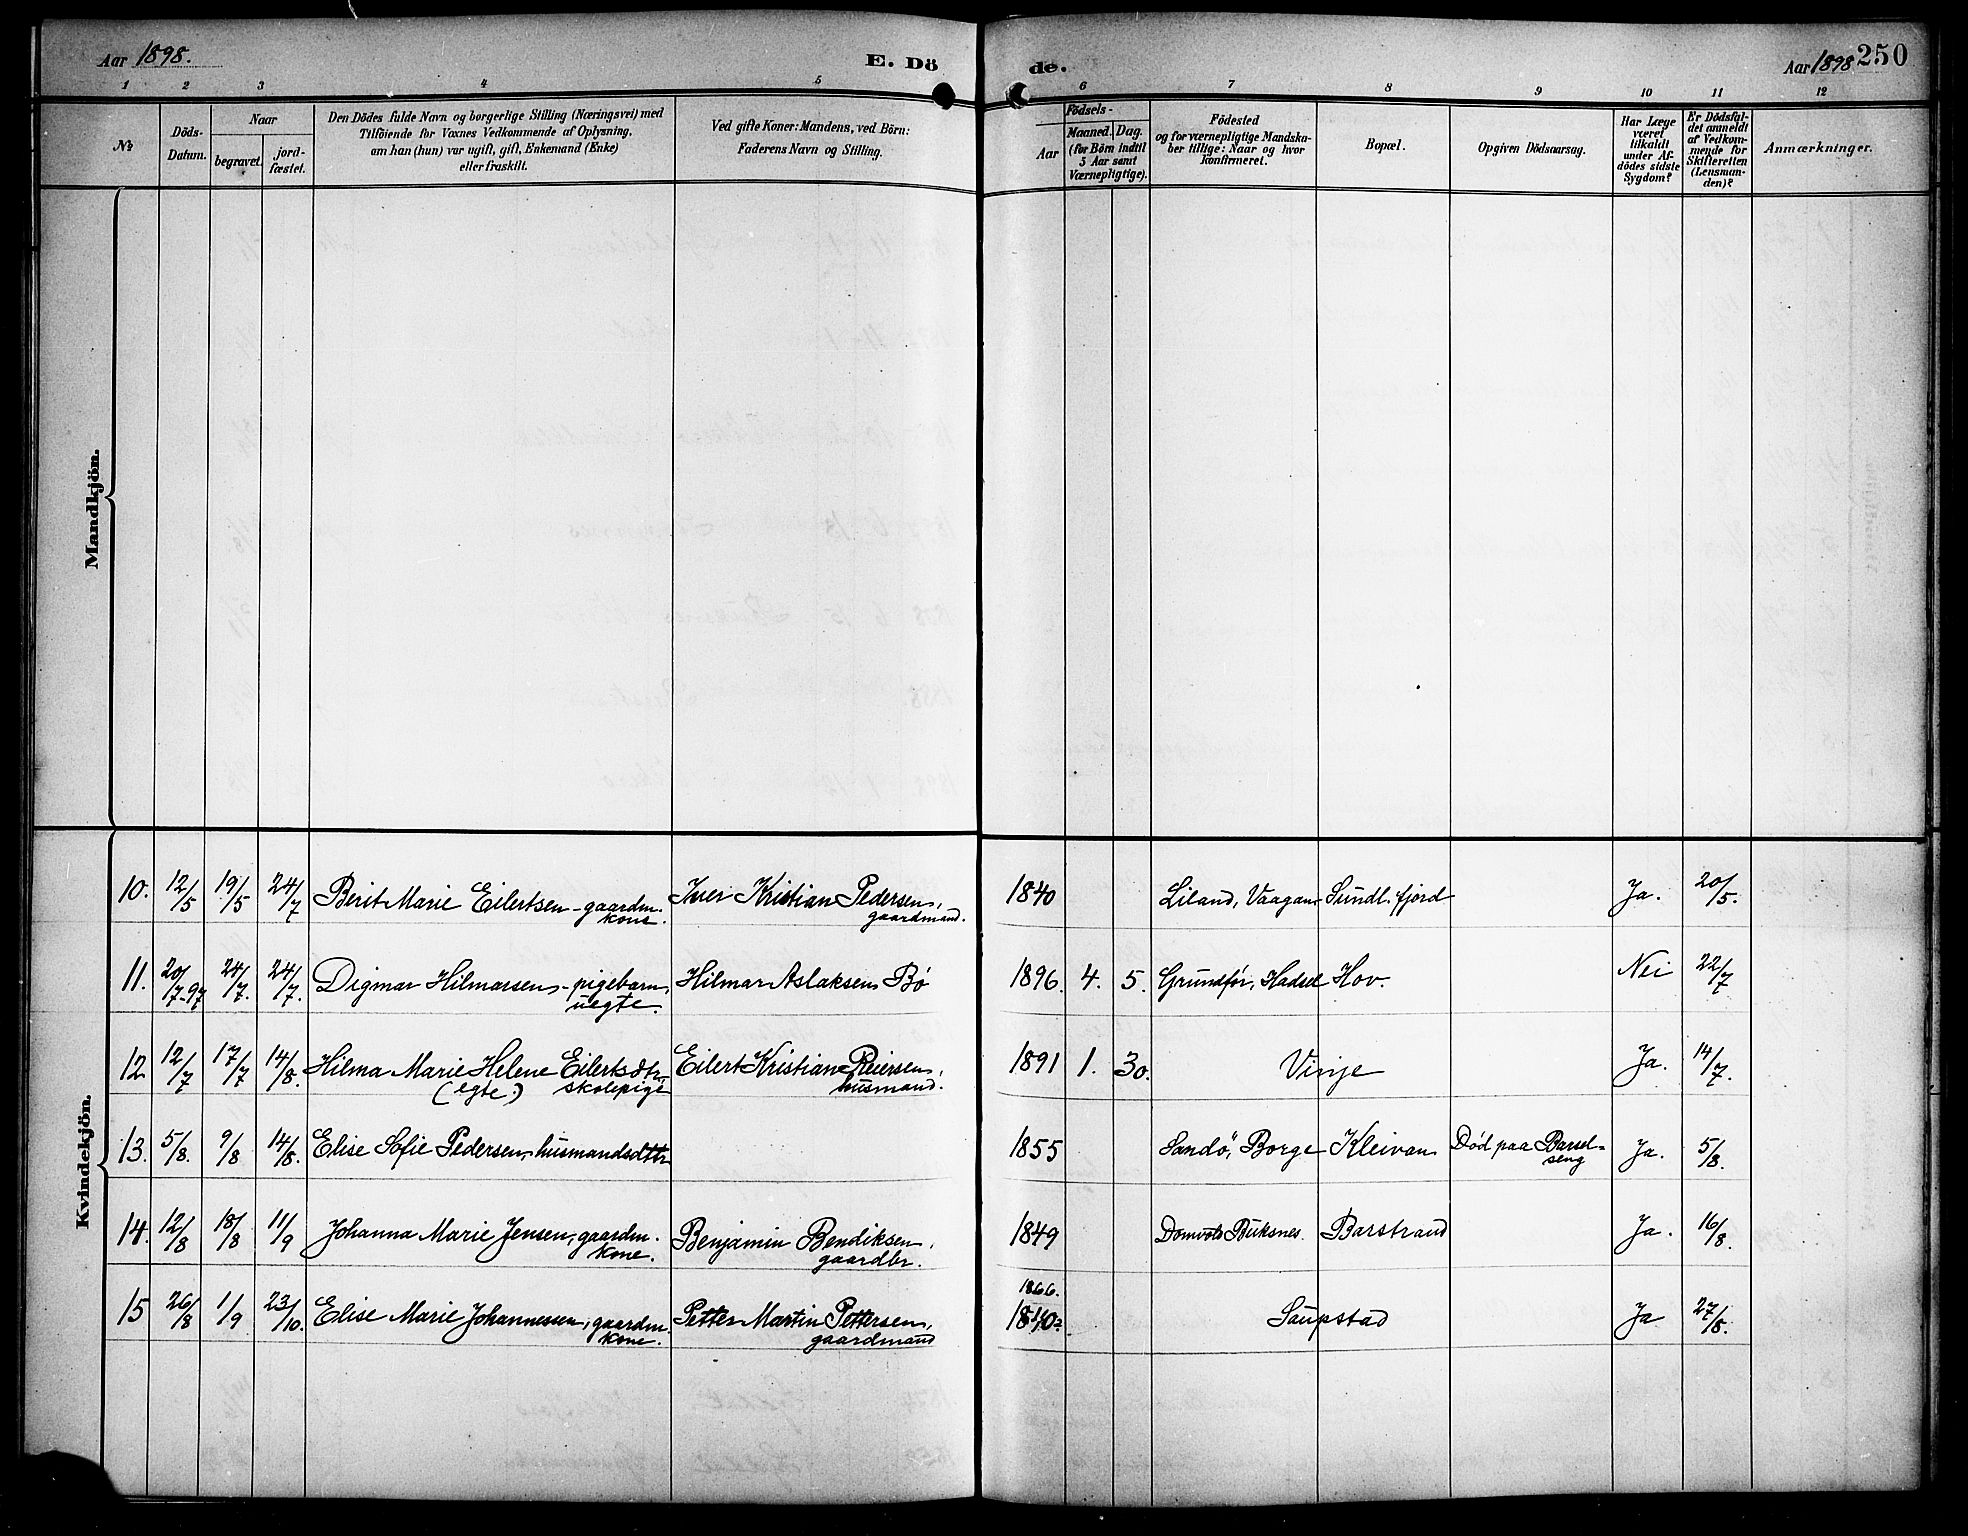 Aar 1898. E. Dö de. Aar 1898 250
1 2 3 4 5 6 7 8 9 10 11 12
№
Döds-
Datum.
Naar
begravet.
jord-
fæstet.
Den Dödes fulde Navn og borgerlige Stilling (Næringsvei) med
Tilföiende for Voxnes Vedkommende af Oplysning,
om han (hun) var ugift, gift, Enkemand (Enke)
eller fraskilt.
Ved gifte Koner: Mandens, ved Börn:
Faderens Navn og Stilling.
Födsels-
Aar
Maaned. Dag.
(for Börn indtil
5 Aar samt
Værnepligtige).
Födested
og for værnepligtige Mandska-
ber tillige: Naar og hvor
konfirmeret.
Bopæl.
Opgiven Dödsaarsag.
Har Læge
været
tilkaldt
under Af-
dödes sidste
Sygdom?
Er Dödsfal-
det anmeldt
af Vedkom-
mende for
Skifteretten
(Lensman-
den)?
Anmærkninger.
Mandkjön.
Kvindekjön.
10. 12/5 19/5 24/7 Berit Marie Eilertsen - gaardm. Iver Kristian Pedersen, 1840 Liland, Vaagan Sundl. fjord Ja. 20/5.
kone. gaardmand.
11. 20/7-97 24/7. 24/7. Digmar Hilmarsen - pigebarn, Hilmar Aslaksen Bö 1896. 4. 5. Grundför, Hadsel Hov. Nei 22/7
uegte.
12. 12/7 17/7 14/8. Hilma Marie Helene Eilertsdtr, Eilert Kristian Reiersen, 1891 1. 30. Vinje Ja. 14/7.
(egte.) skolepige husmand.
13. 5/8. 9/8 14/8. Elise Sofie Pedersen, husmandsdttr 1855 Sandö, Borge Kleivan Död paa Barsel- Ja. 5/8.
seng
14. 12/8 18/8 11/9 Johanna Marie Jensen, gaardm. Benjamin Bendiksen, 1849 Buksnes. Barstrand Ja. 16/8.
kone. gaardbr.
1866.
15 26/8 1/9 23/10. Elise Marie Johannessen, gaardm. Petter Martin Pettersen, 1840 Saupstad Ja 27/8.
kone. gaardmand